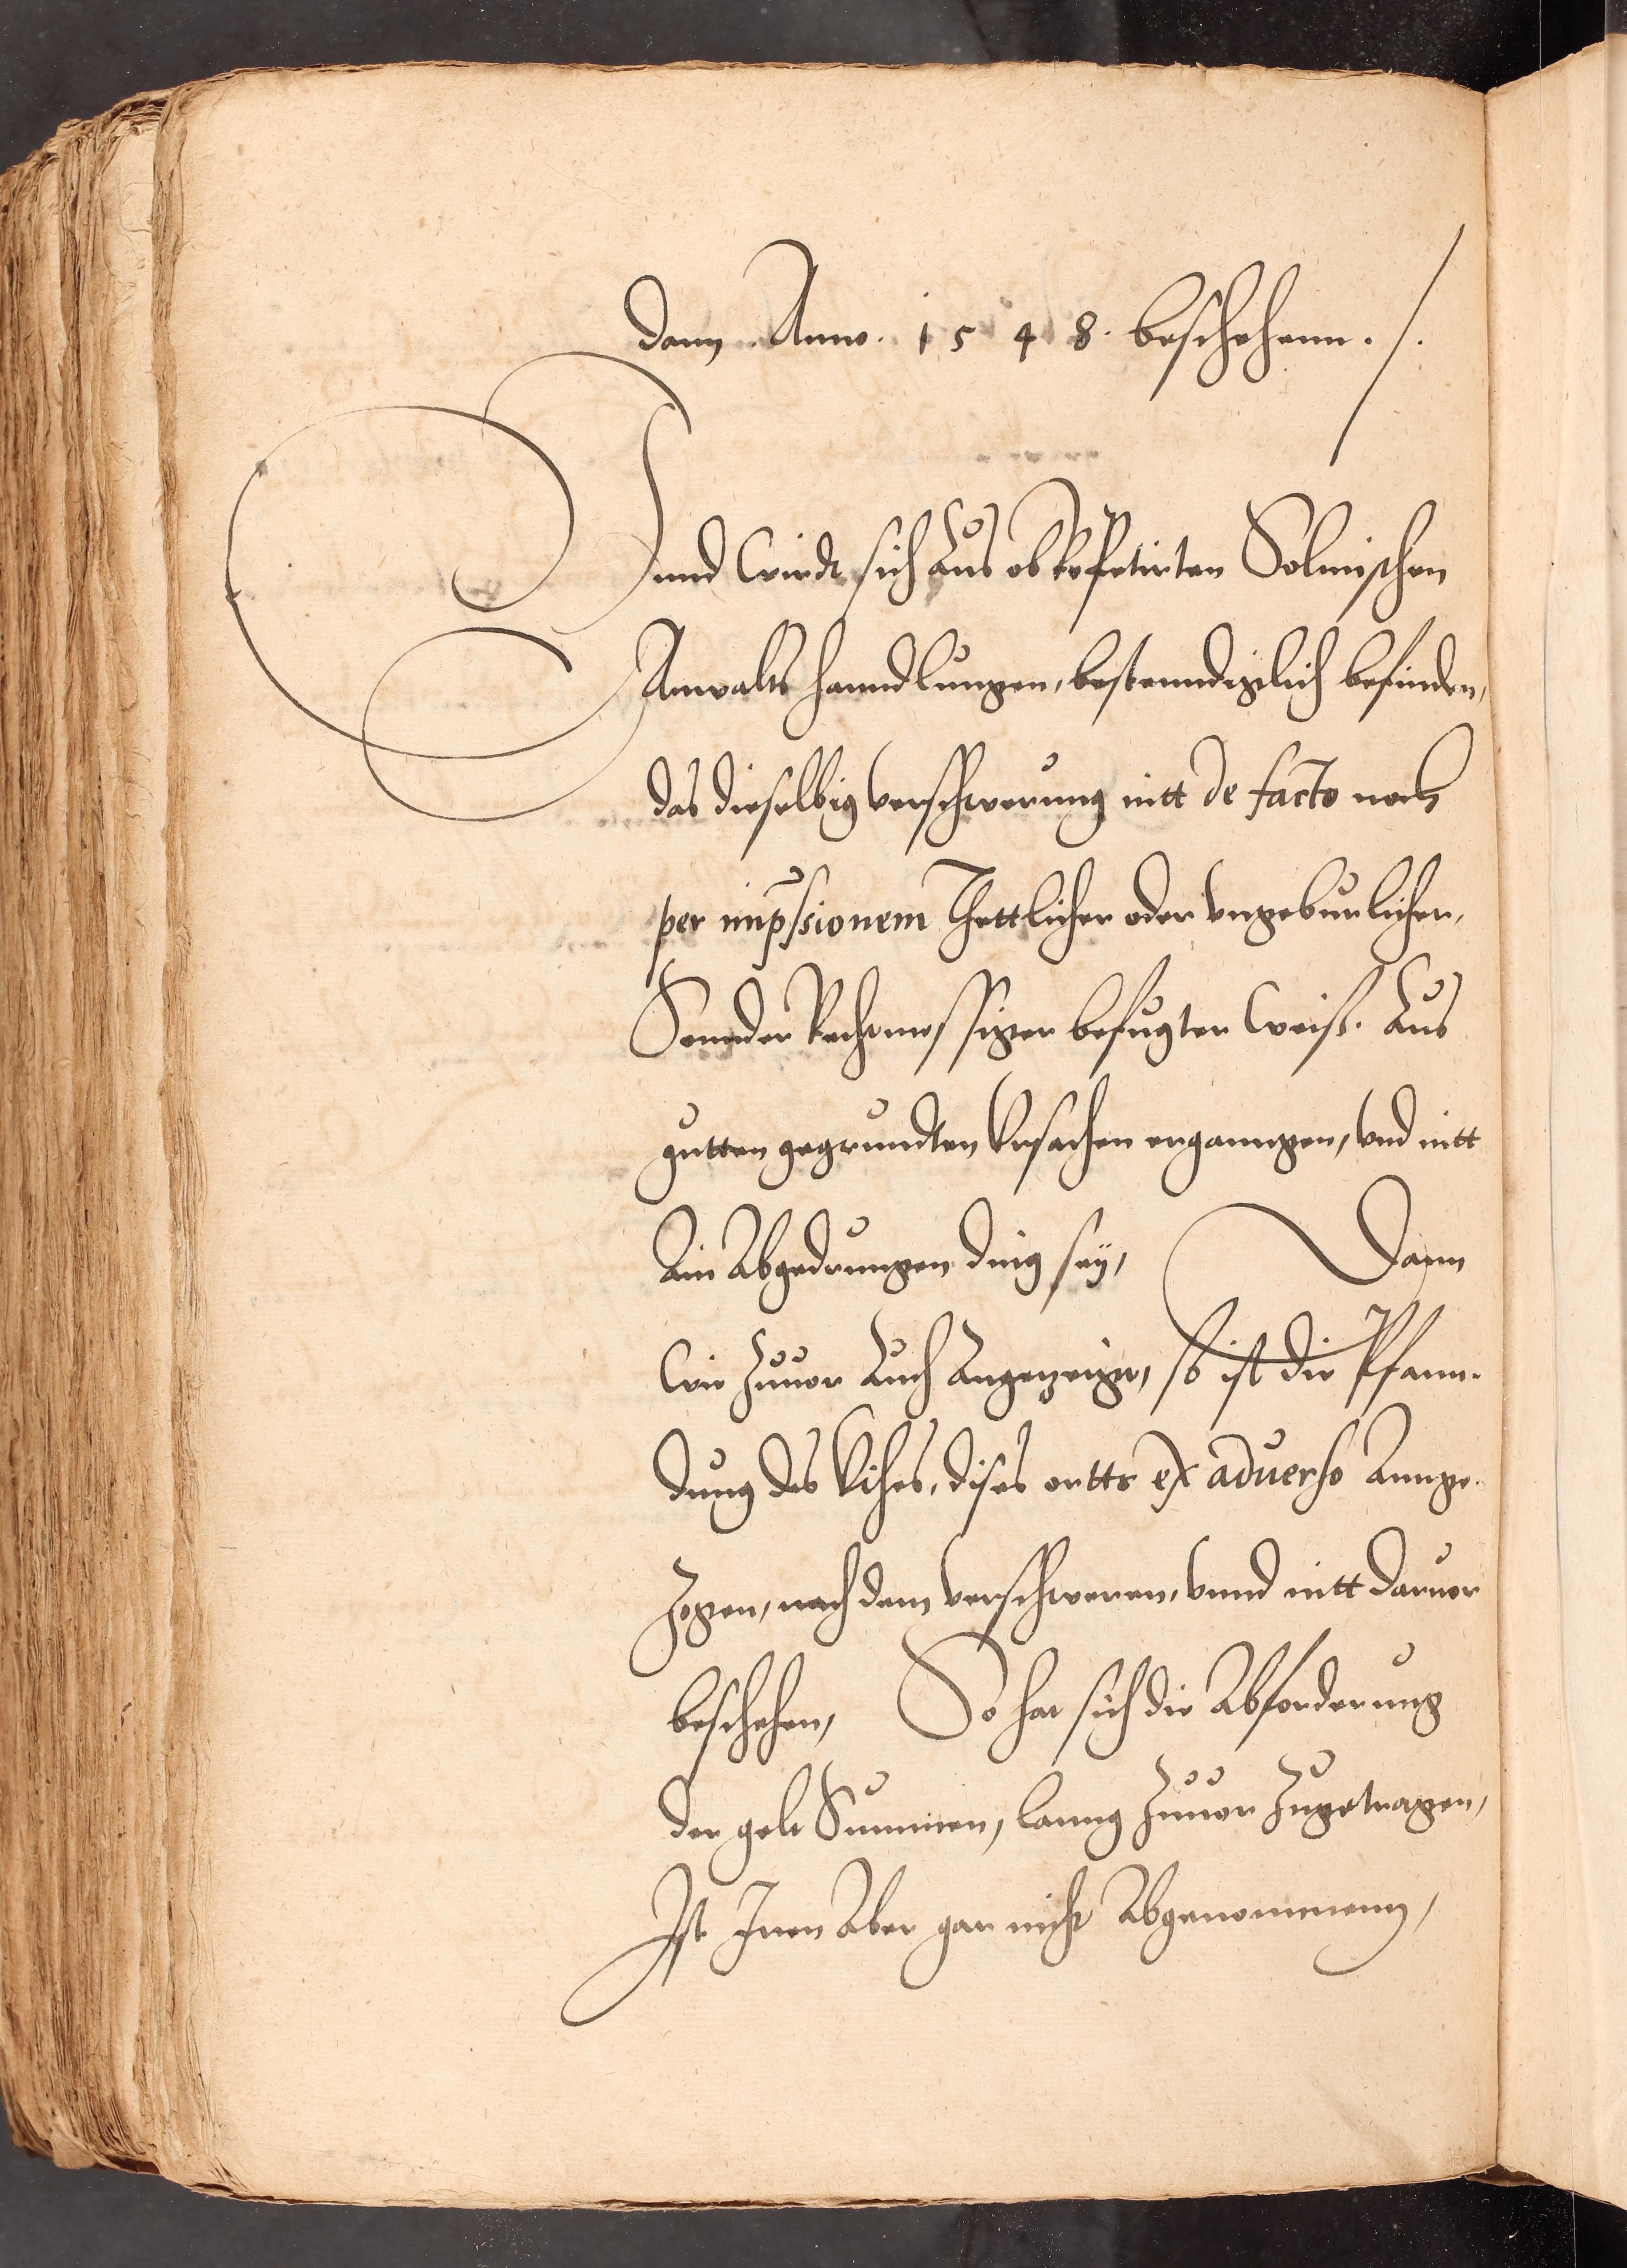 dann Anno. 1548. beschehenn. /.
Vnnd wirdt sich aus ob repetirten Solmischen
Anwalts hanndlungen, bestenndiglich befinden,
das dieselbig verschwerung nitt de facto noch
per imp̃ssionem Thettlicher oder vngeburlicher,
Sonnder Rechtmessiger befugter weiß. Aus
gutten gegrundten Vrsachen erganngen, vnd nitt
Ain Abgedrungen ding sey, Dann
wie zuuor auch angezeigt, so ist die Pfann-
dung des Vihes, dises ortts ex aduerso annge-
zogen, nach dem verschweren, vnnd nitt daruor
beschehen, So hat sich die Abforderung
der gelt Summen, lanng zuuor zugetragen,
Ist Inen Aber gar nicht Abgenommenn,